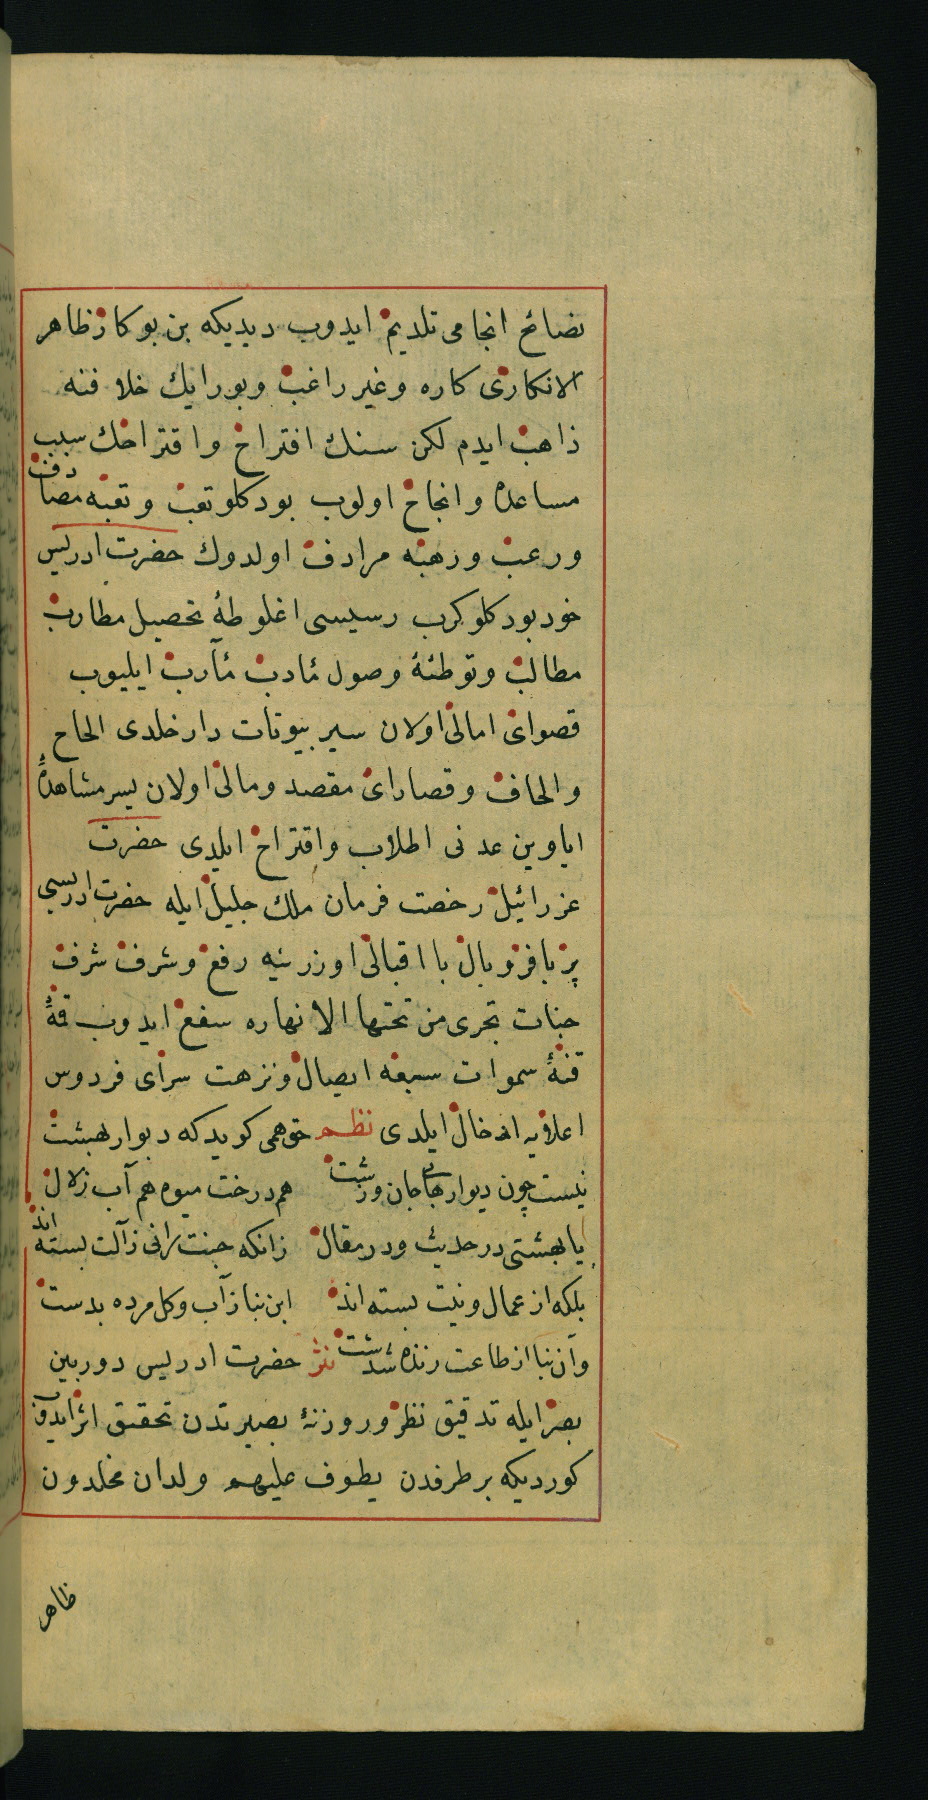 نصائح انجامى تلديم ايدوب ديديكه بن بو كار ظاهر
الانكارى كاره وغير راغب وبو رايك خلافنه
ذاهب ايدم لكن سنك افتراح واقتراحك سبب
مساعده وانجاح اولوب بودكلو تعب وتعبه مصادف
ورعب ورهبه مرادف اولدوك حضرت ادريس
خود بودكلو كرب رسيسى اغلوطهٔ تحصيل مطارب
مطالب وتوطئهٔ وصول مٔادب مٔآرب ايليوب
قصواى امالى اولان سير بيوتات دار خلدى الحاح
والحاف وقصاراى مقصد ومالى اولان يسر مشاهدهٔ
اياوين عدنى اطلاب واقتراح ايلدى حضرت
عزرائيل رخصت فرمان ملك جليل ايله حضرت ادريسى
پر با فر و بال با اقبالى اوزرينه رفع وشرف شرف
جنات تجرى من تحتها الانهاره سفع ايدوب قمهٔ
قنهٔ سموات سبعه ايصال ونزهت سراى فردوس
اعلايه ادخال ايلدى نظم حق همى كويد كه ديوار بهشت
نيست چون ديوارها بى جان وزشت هم درخت ميوه هم آب زلال
با بهشتى در حديث ودر مقال زانكه جنت رانى زآلت بسته اند
بلكه از عمال ونيت بسته اند اين بنا زآب وكل مرده بدست
وآن بنا از طاعت زنده شدست نثر حضرت ادريس دوربين
بصر ايله تدقيق نظر وروزنهٔ بصيرتدن تحقيق اثر ايدوب
كورديكه بر طرفدن يطوف عليهم ولدان مخلدون
ظاهر